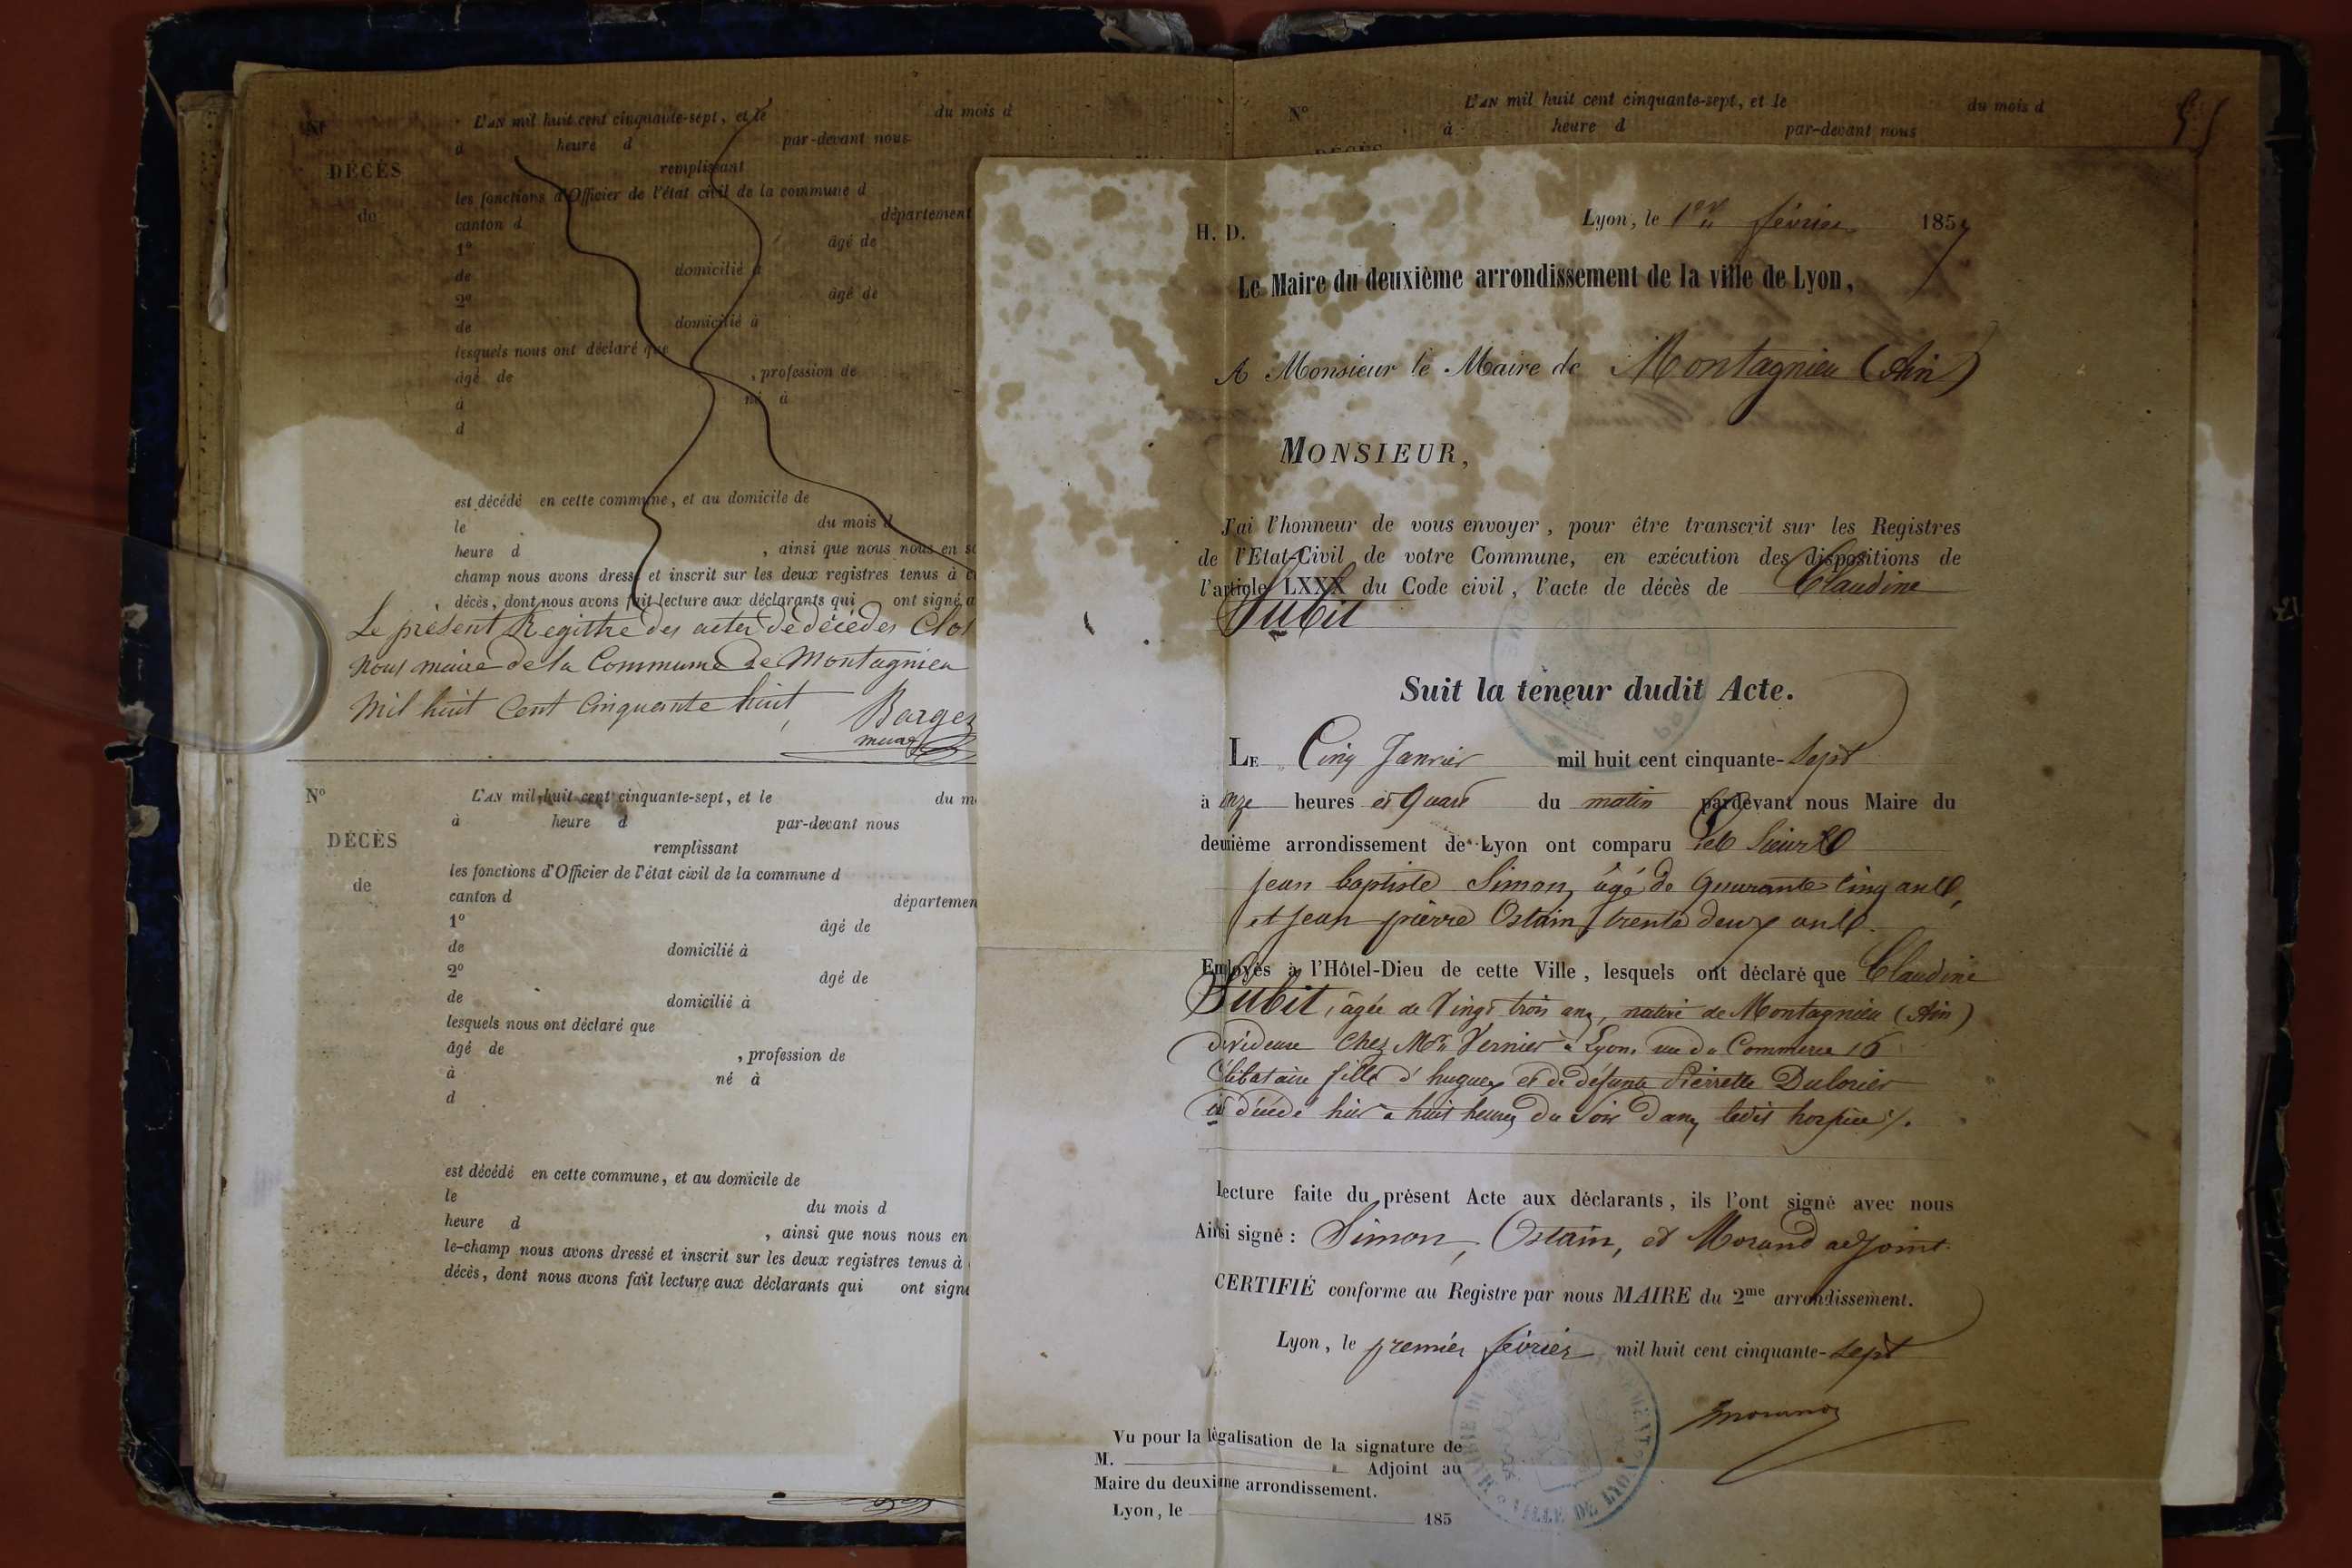 Nº
L'AN mil huit cent cinquante-sept, et le du mois d
à heure d par-devant nous
DÉCÈS
remplissant
de
les fonctions d'Officier de l'état civil de la commune d
canton d département
1º âgé de
de domicilié à
2º âgé de
de domicilié à
lesquels nous ont déclaré que
âgé de , profession de
à né à
d
est décédé en cette commune, et au domicile de
le du mois d
heure d , ainsi que nous nous en
champ nous avons dressé et inscrit sur les deux registres tenus à
décès, dont nous avons fait lecture aux déclarants qui ont signé
Le présent Registre des actes de décèdes Clos
nous maire de la Commune de Montagnieu
mil huit Cent Cinquante huit
Bargez
maire
Nº
L'AN mil huit cent cinquante-sept, et le du m
à heure d par-devant nous
DÉCÈS
remplissant
de
les fonctions d'Officier de l'état civil de la commune d
canton d départemen
1º âgé de
de domicilié à
2º âgé de
de domicilié à
lesquels nous ont déclaré que
âgé de , profession de
à né à
d
est décédé en cette commune, et au domicile de
le du mois d
heure d , ainsi que nous nous en
le-champ nous avons dressé et inscrit sur les deux registres tenus à
décès, dont nous avons fait lecture aux déclarants qui ont signé
Nº L'AN mil huit cent cinquante-sept, et le du mois d
à heure d par-devant nous
DÉCÈS
H. D.
Lyon, le 1er février 1857
Le Maire du deuxième arrondissement de la ville de Lyon,
A Monsieur le Maire de Montagnieu (Ain)
MONSIEUR,
J'ai l'honneur de vous envoyer, pour être transcrit sur les Registres
de l'Etat-Civil de votre Commune, en exécution des dispositions de
l'article LXXX du Code civil, l'acte de décès de Claudine
Subit
Suit la teneur dudit Acte.
LE Cinq Janvier mil huit cent cinquante-sept
à onze heures et Quart du matin pardevant nous Maire du
deuxième arrondissement de Lyon ont comparu les Sieurs
Jean baptiste Simon, âgé de quarante cinq ans,
et Jean pierre Ostain, trente deux ans
Employés à l'Hôtel-Dieu de cette Ville, lesquels ont déclaré que Claudine
Subit, âgée de Vingt trois ans, native de Montagnieu (Ain)
dévideuse chez Mr Vernier à Lyon, rue du Commerce 16
Célibataire fille d'hugues et de défunte Pierrette Dulorier
est décédé hier à huit heures du Soir dans ledit hospice /.
Lecture faite du présent Acte aux déclarants, ils l'ont signé avec nous
Ainsi signé : Simon, Ostain, et Morand adjoint.
CERTIFIÉ conforme au Registre par nous MAIRE du 2me arrondissement.
Lyon, le premier février mil huit cent cinquante-sept
Morand
Vu pour la légalisation de la signature de
M. Adjoint au
Maire du deuxième arrondissement.
Lyon, le 185
VILLE DE LYON